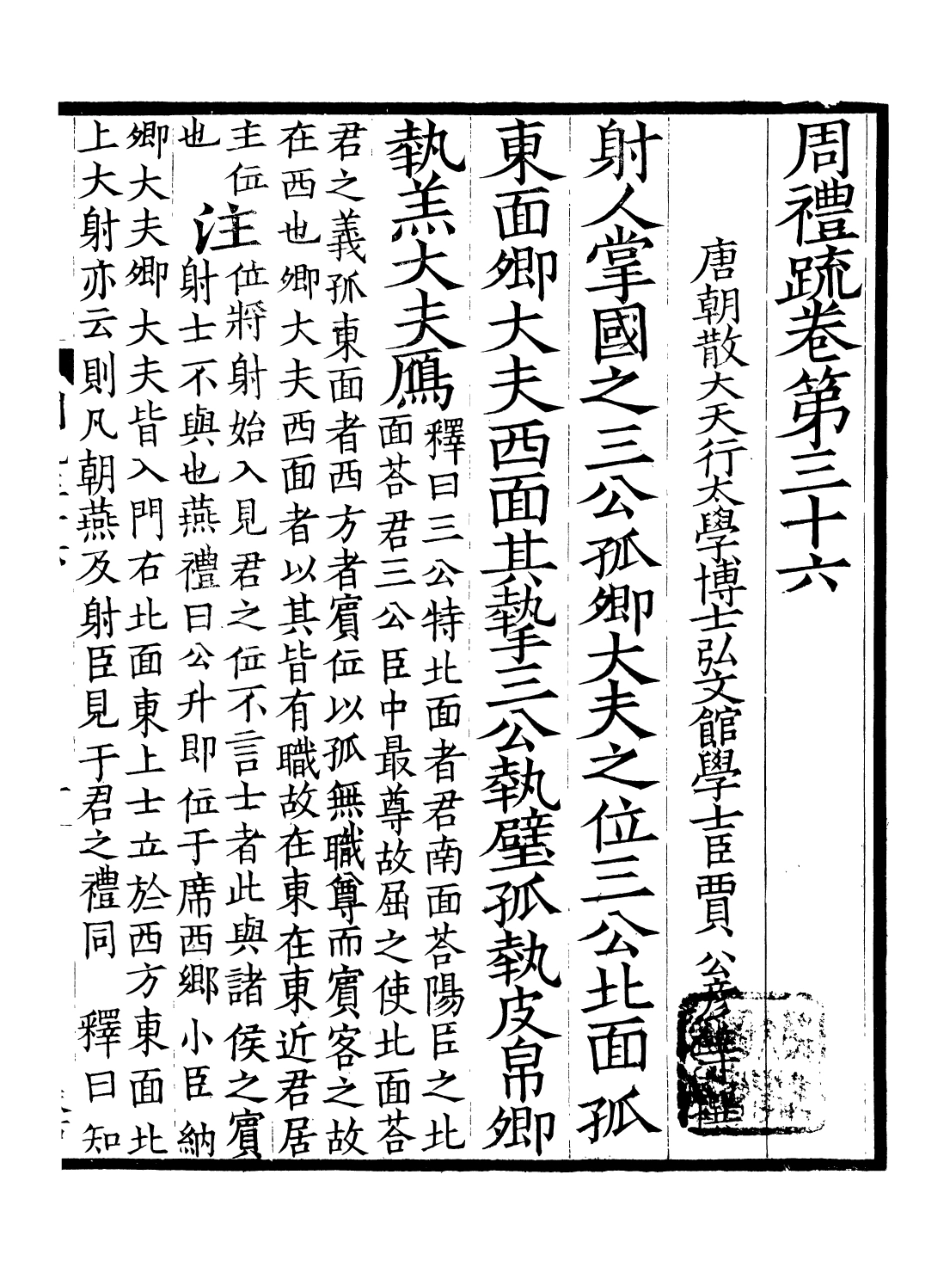 周禮疏卷第三十六
唐朝散大天行太學博士弘文館學士臣賈公彥等撰
射人掌國之三公孤卿大夫之位三公北面孤
東面卿大夫西面其摯三公執璧孤執皮帛卿
執羔大夫鴈
釋曰三公特北面者君南面荅陽臣之北
面荅君三公臣中最尊故屈之使北面荅
君之義孤東面者西方者賔位以孤無職尊而賔客之故
在西也卿大夫西面者以其皆有職故在東在東近君居
主位
也
注
位將射始入見君之位不言士者此與諸侯之賔
射士不與也燕禮曰公升即位于席西鄉小臣納
卿大夫卿大夫皆入門右北面東上士立於西方東面北
上大射亦云則凡朝燕及射臣見于君之禮同 釋曰知